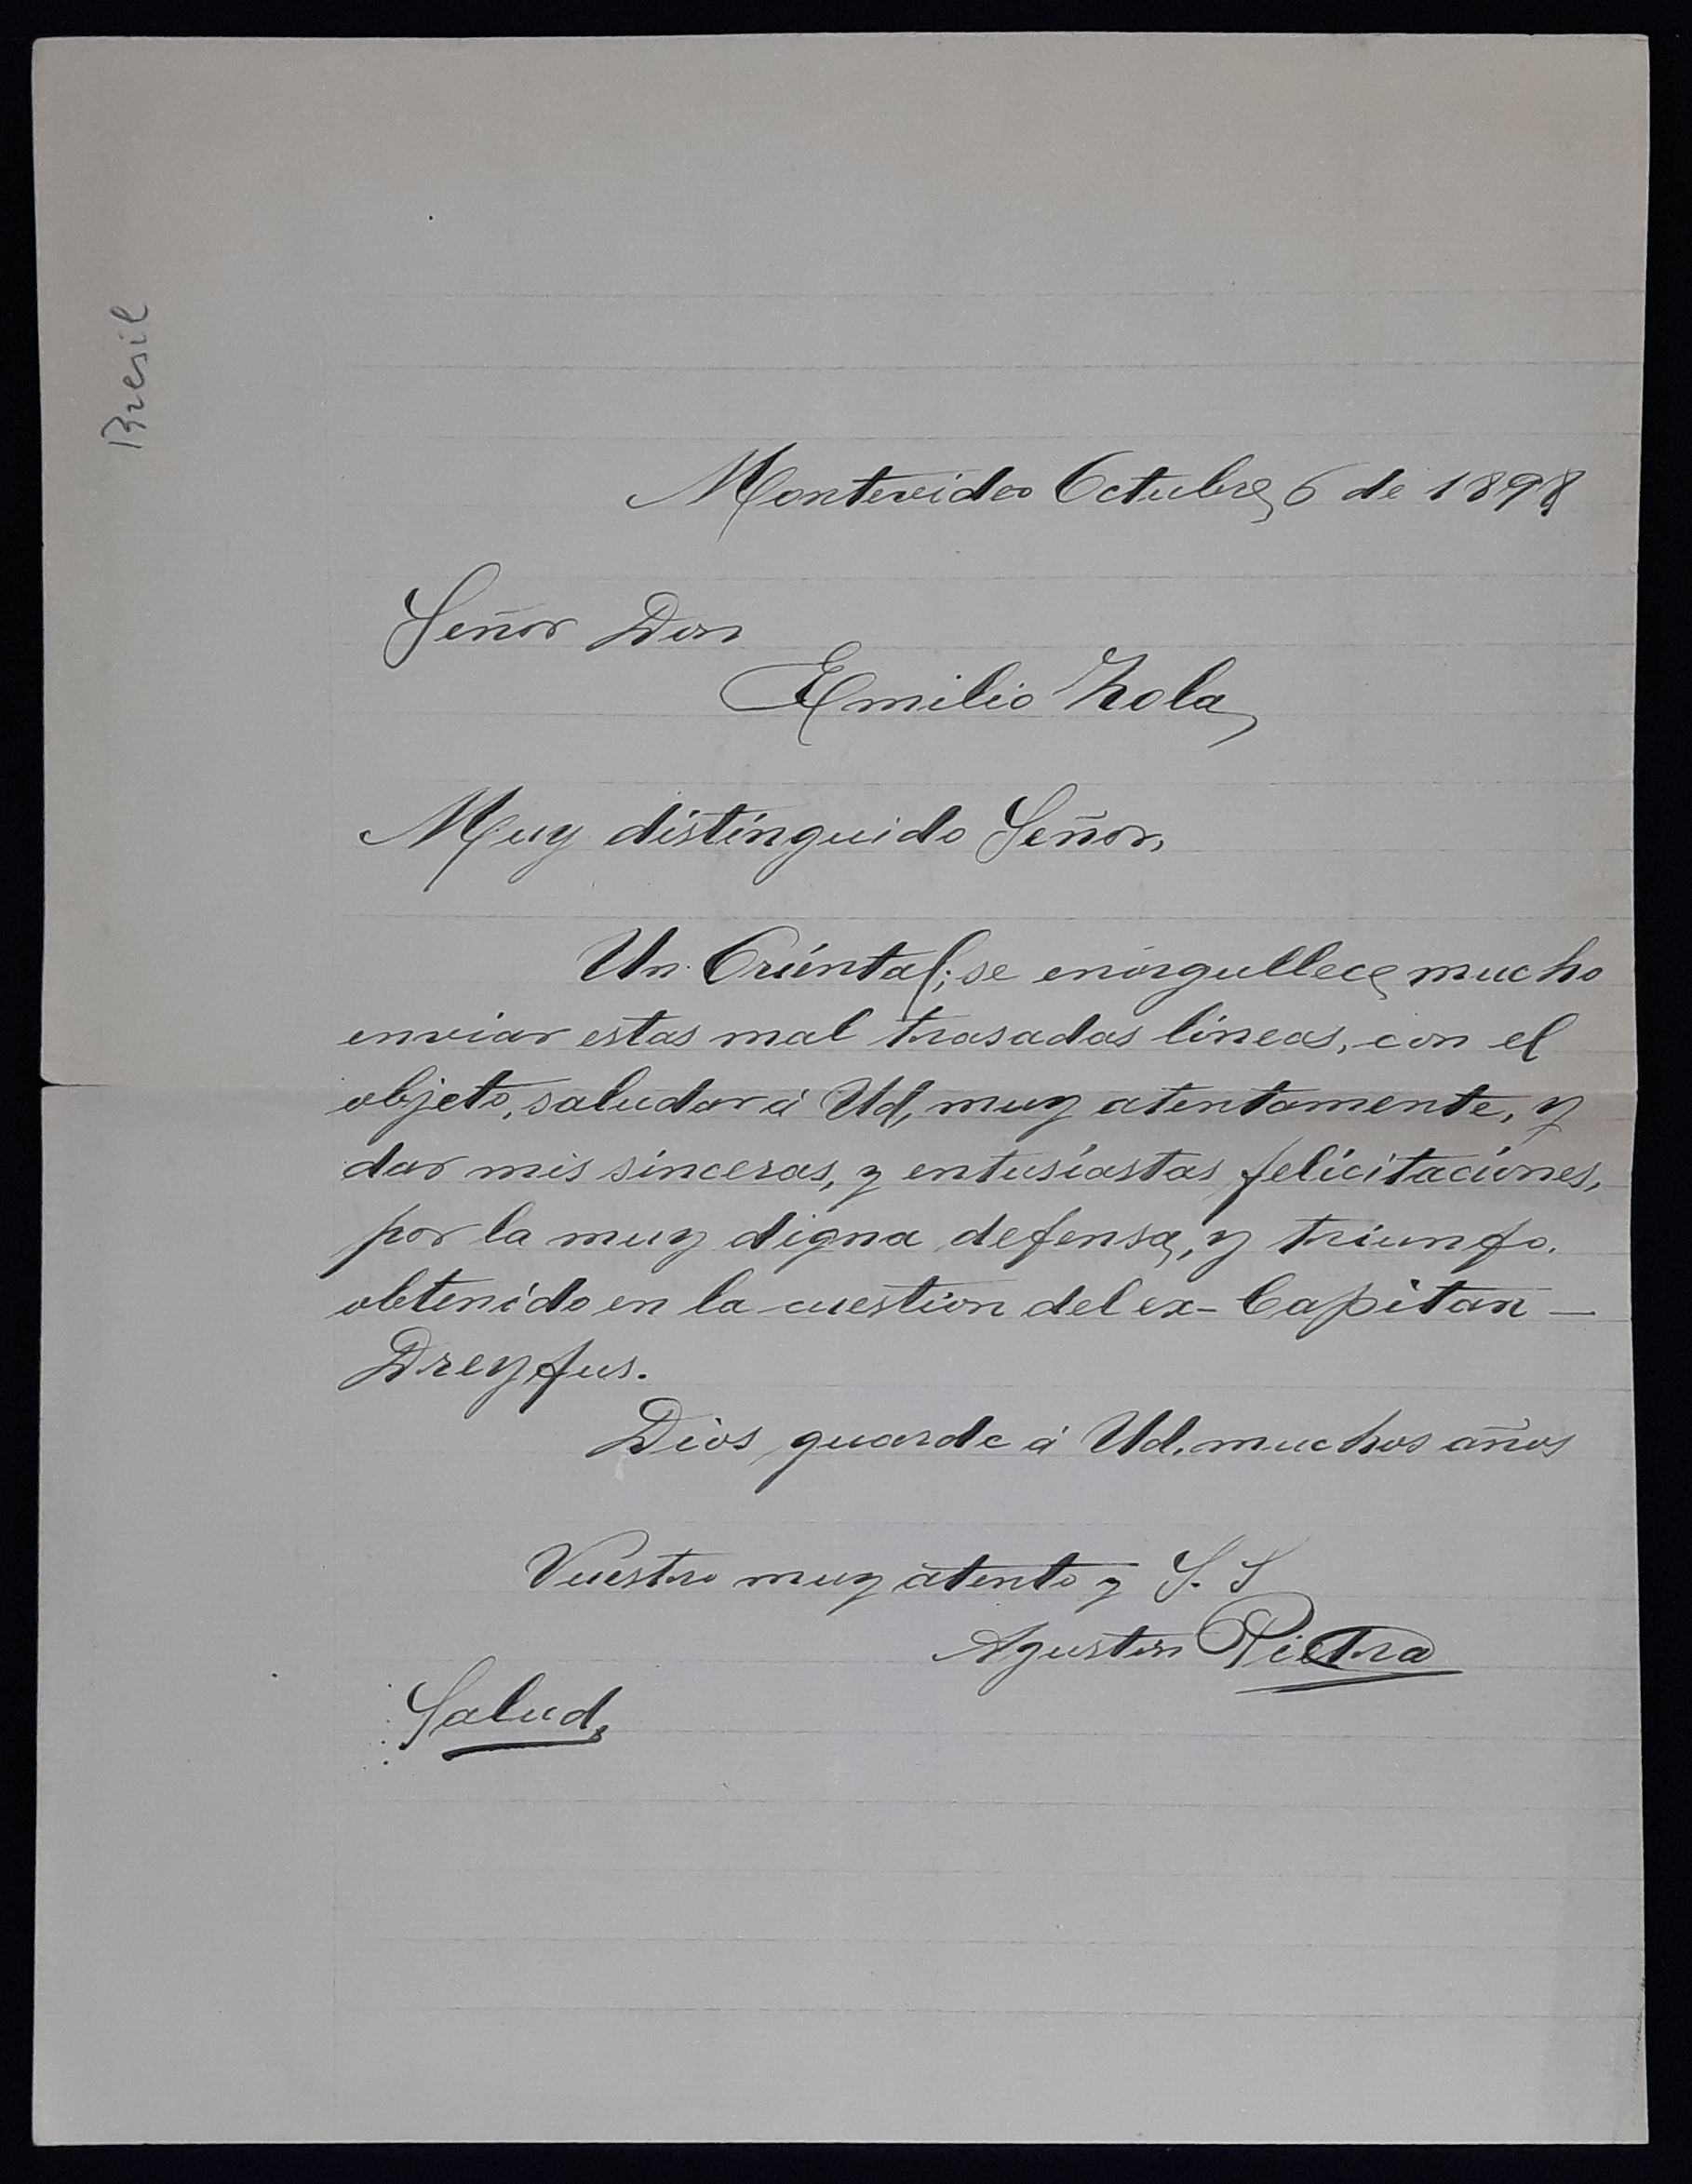 Bresil
Montevideo Octubre 6 de 1898
Señor Don
Emilio Zola
Muy distinguido Señor,
Un Oriental; se enorgullece mucho
enviar estas mal trasadas lineas, con el
objeto, saludar á Ud, muy atentamente, y
dar mis sinceras, y entusiastas felicitaciones,
por la muy digna defensa, y triunfo.
obtenido en la cuestion del ex-Capitan —
Dreyfus.
Dios guarde á Ud. muchos años
Vuestro muy atento y S. S
Agustin Pietra
Salud,